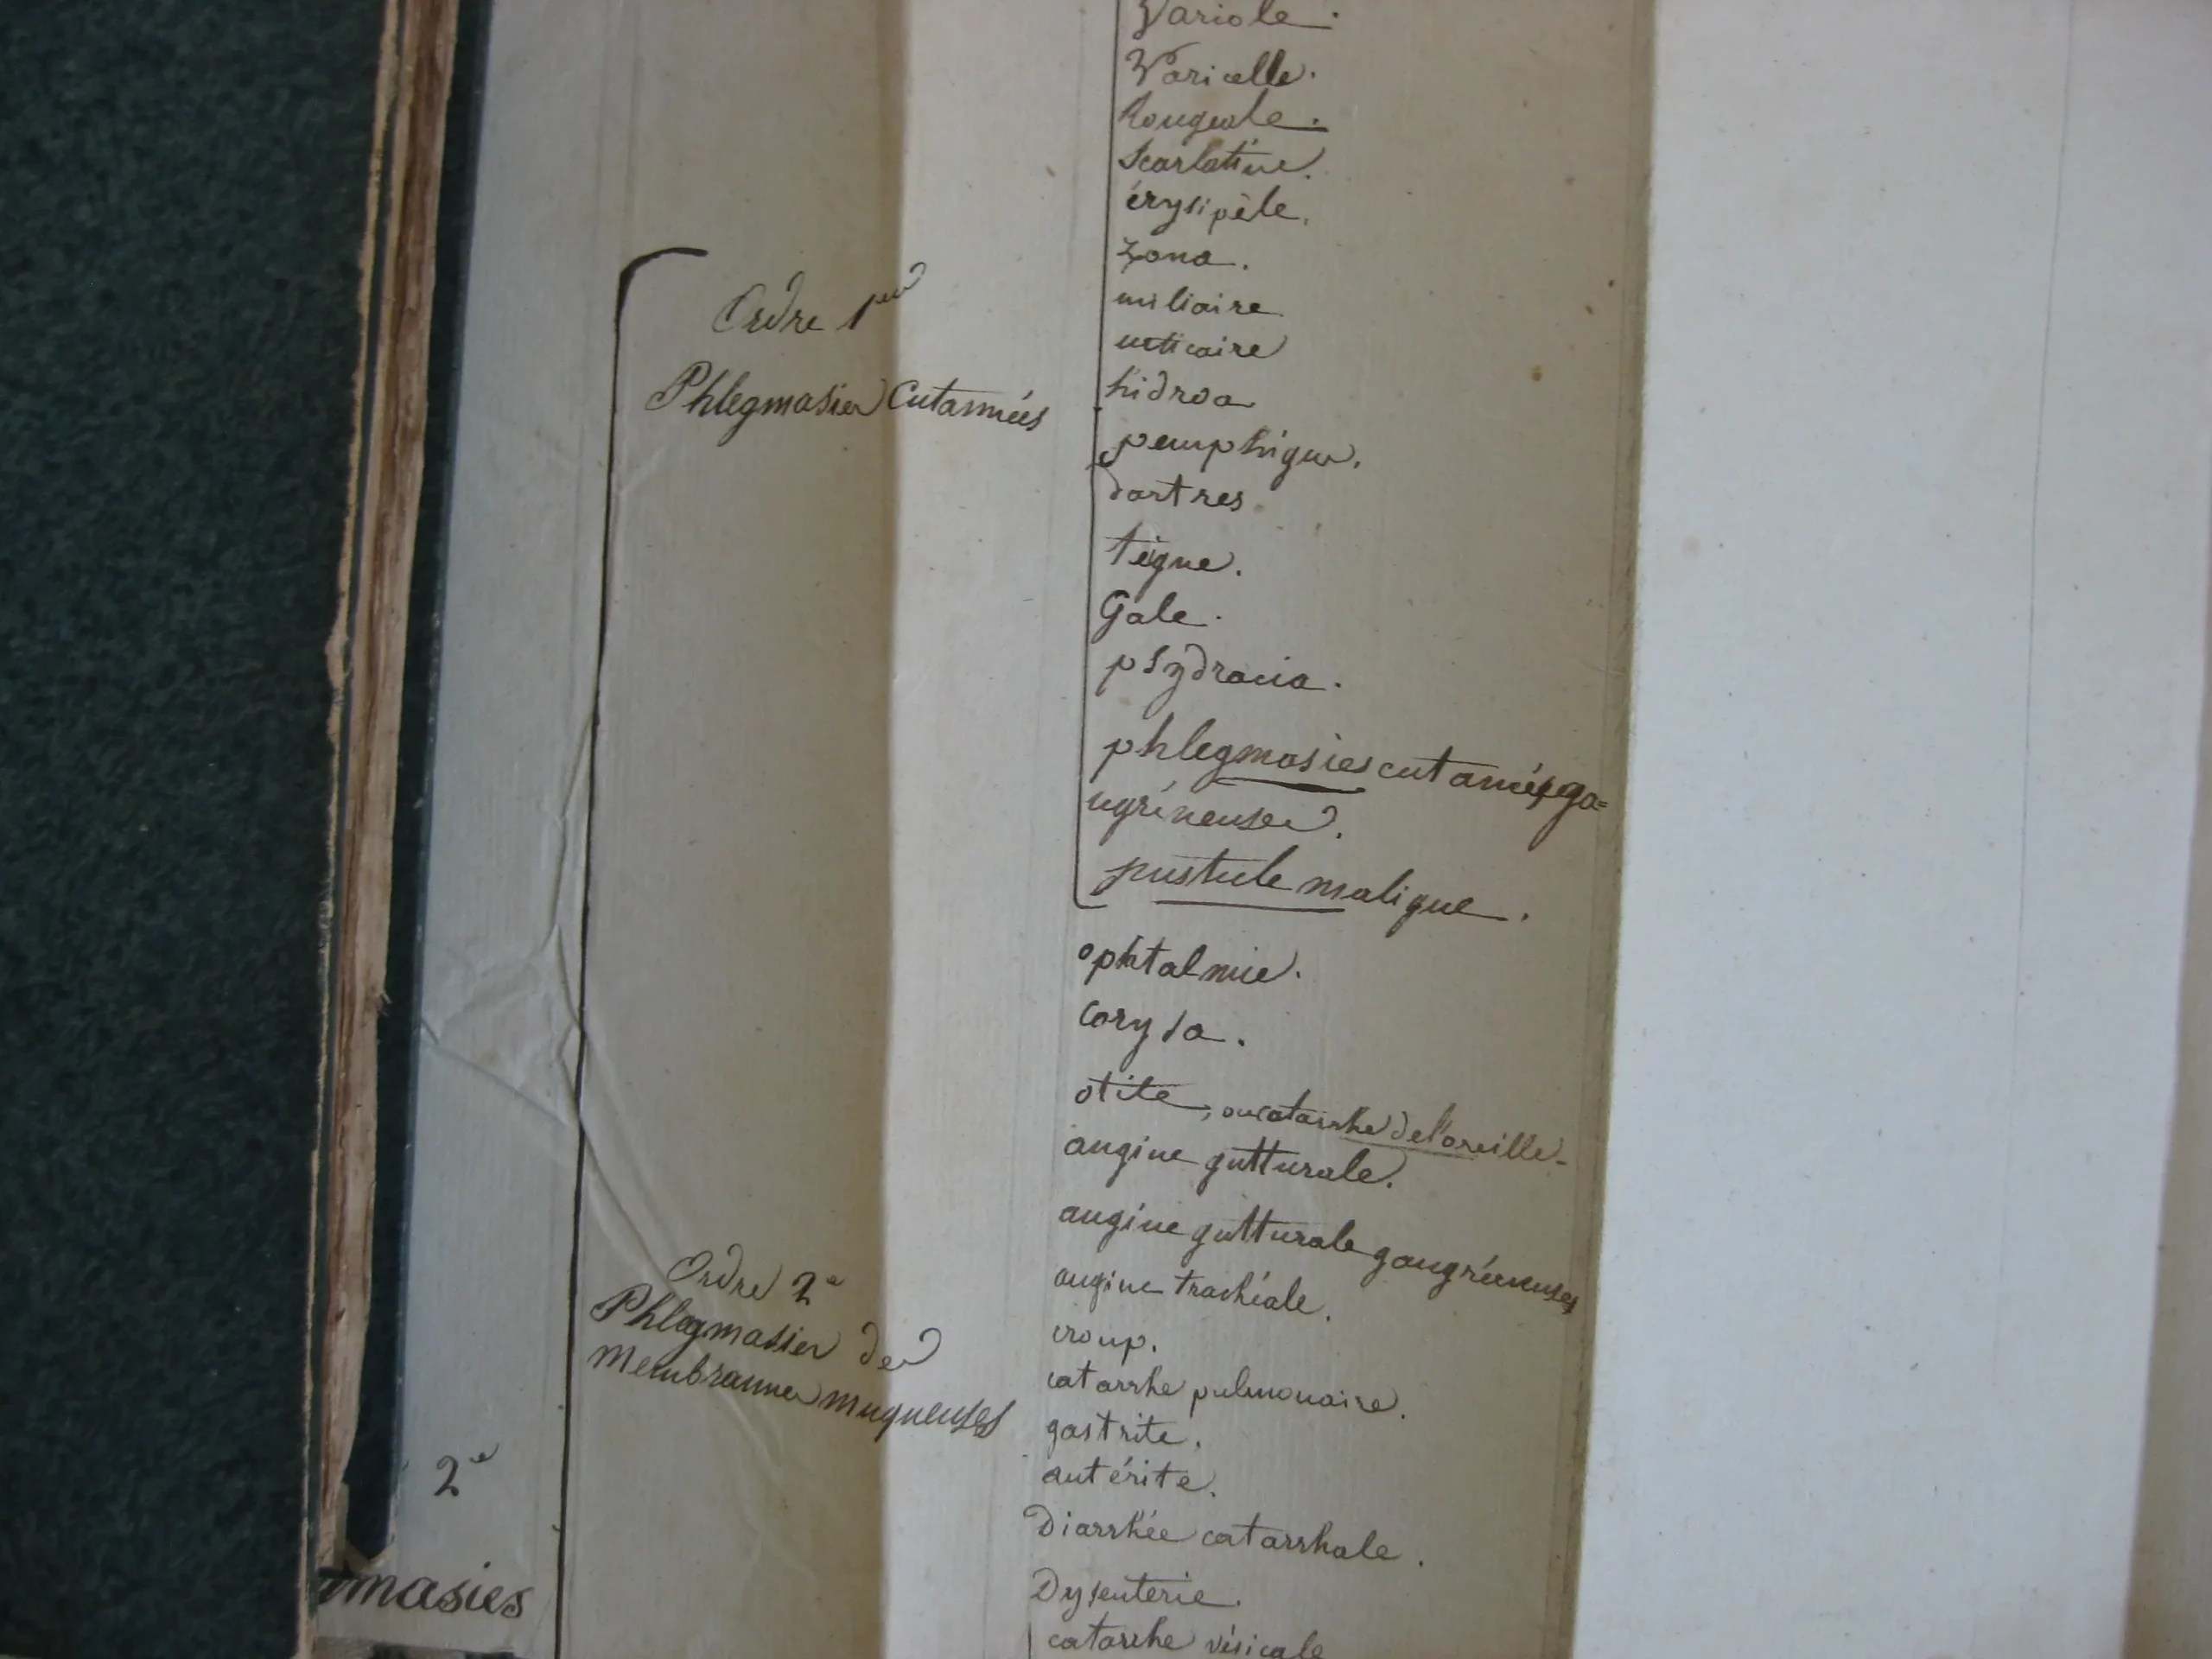 Variole.
Varicelle.
Rougeole.
Scarlatine.
érysipèle.
Zona.
miliaire
urticaire
hidroa
pemphigus.
dartres
teigne.
Gale.
psydracia.
phlegmasies cutanées ga=
ngréneuses.
pustule maligne.
Ordre 1er
Phlegmasies Cutannées
ophtalmie.
Corysa.
otite, ou catarrhe de l'oreille-
angine gutturale.
angine gutturale gangréneuses
angine trachéale.
croup.
catarrhe pulmonaire.
gastrite.
antérite.
Diarrhée catarrhale.
Dysenterie.
catarrhe vésicale
Ordre 2e
Phlegmasies des
Membrannes muqueuses
2e
gmasies